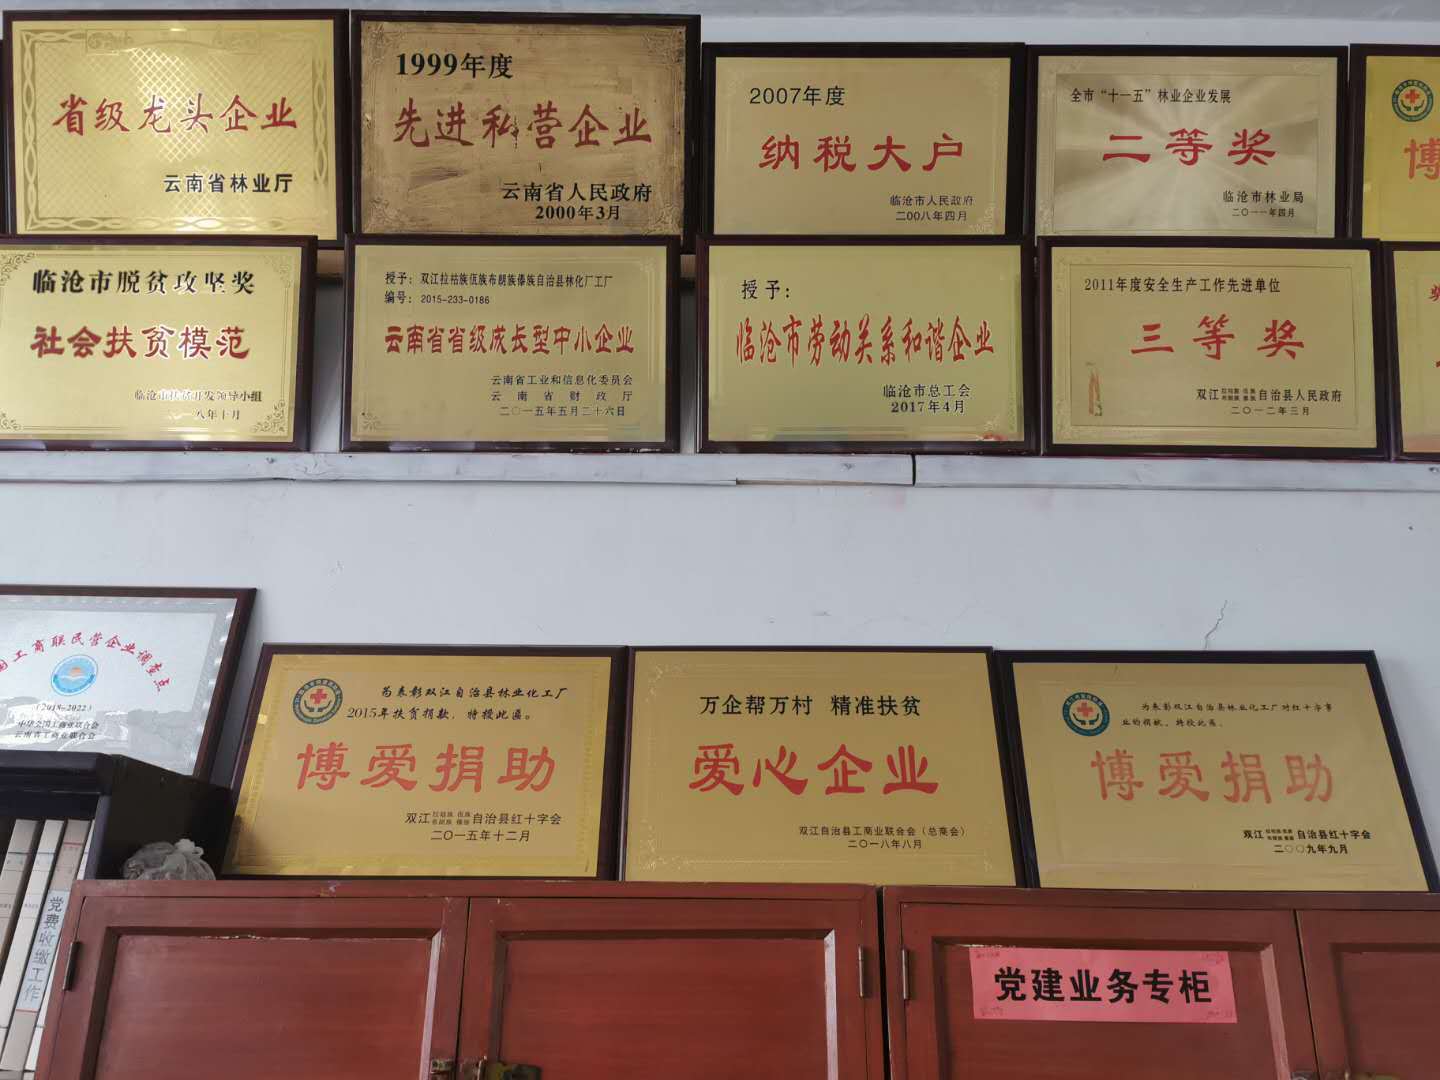 省级龙头企业
云南省林业厅
1999年度
先进私营企业
云南省人民政府
2000年3月
2007年度
纳税大户
临沧市人民政府
二00八年四月
全市“十一五”林业企业发展
二等奖
临沧市林业局
二〇一一年四月
博
临沧市脱贫攻坚奖
社会扶贫模范
临沧市扶贫开发领导小组
八年十月
授予：双江拉祜族佤族布朗族傣族自治县林化厂工厂
编号：2015-233-0186
云南省省级成长型中小企业
云南省工业和信息化委员会
云南省财政厅
二〇一五年五月二十六日
授予：
临沧市劳动关系和谐企业
临沧市总工会
2017年4月
2011年度安全生产工作先进单位
三等奖
双江拉祜族佤族布朗族傣族自治县人民政府
二〇一二年三月
国工商联民营企业调查点
（2018-2022）
中华全国工商业联合会
云南省工商业联合会
为表彰双江自治县林业化工厂
2015年扶贫捐款，特授此匾。
博爱捐助
双江拉祜族佤族布朗族傣族自治县红十字会
二〇一五年十二月
万企帮万村 精准扶贫
爱心企业
双江自治县工商业联合会（总商会）
二〇一八年八月
为表彰双江自治县林业化工厂对红十字事
业的捐献，特授此匾。
博爱捐助
双江拉祜族佤族布朗族傣族自治县红十字会
二〇〇九年九月
党费收缴工作
党建业务专柜